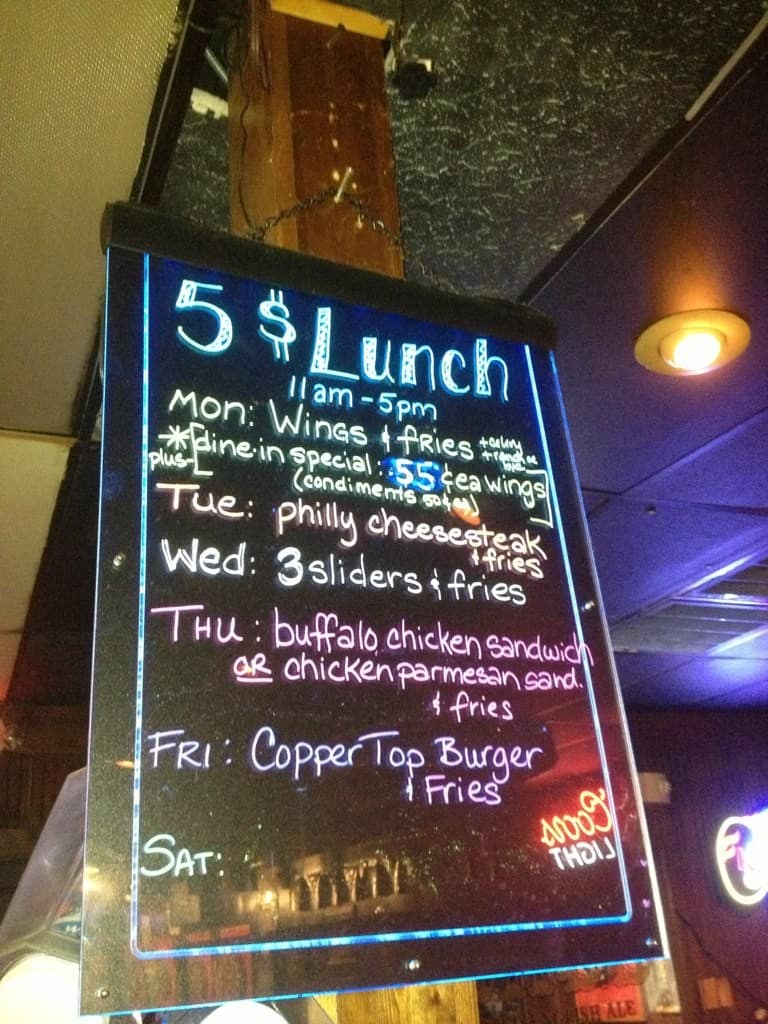 5 $ Lunch
11am - 5pm
Mon: Wings & fries + celery
+ ranch or
*[dine-in special: 55¢ ea wings]
plus-
(condiments 50¢ ea)
Tue: philly cheesesteak
& fries
Wed: 3 sliders & fries
Thu: buffalo chicken sandwich
OR chicken parmesan sand.
& fries
Fri: CopperTop Burger
& Fries
Coors
LIGHT
Sat:
SH ALE